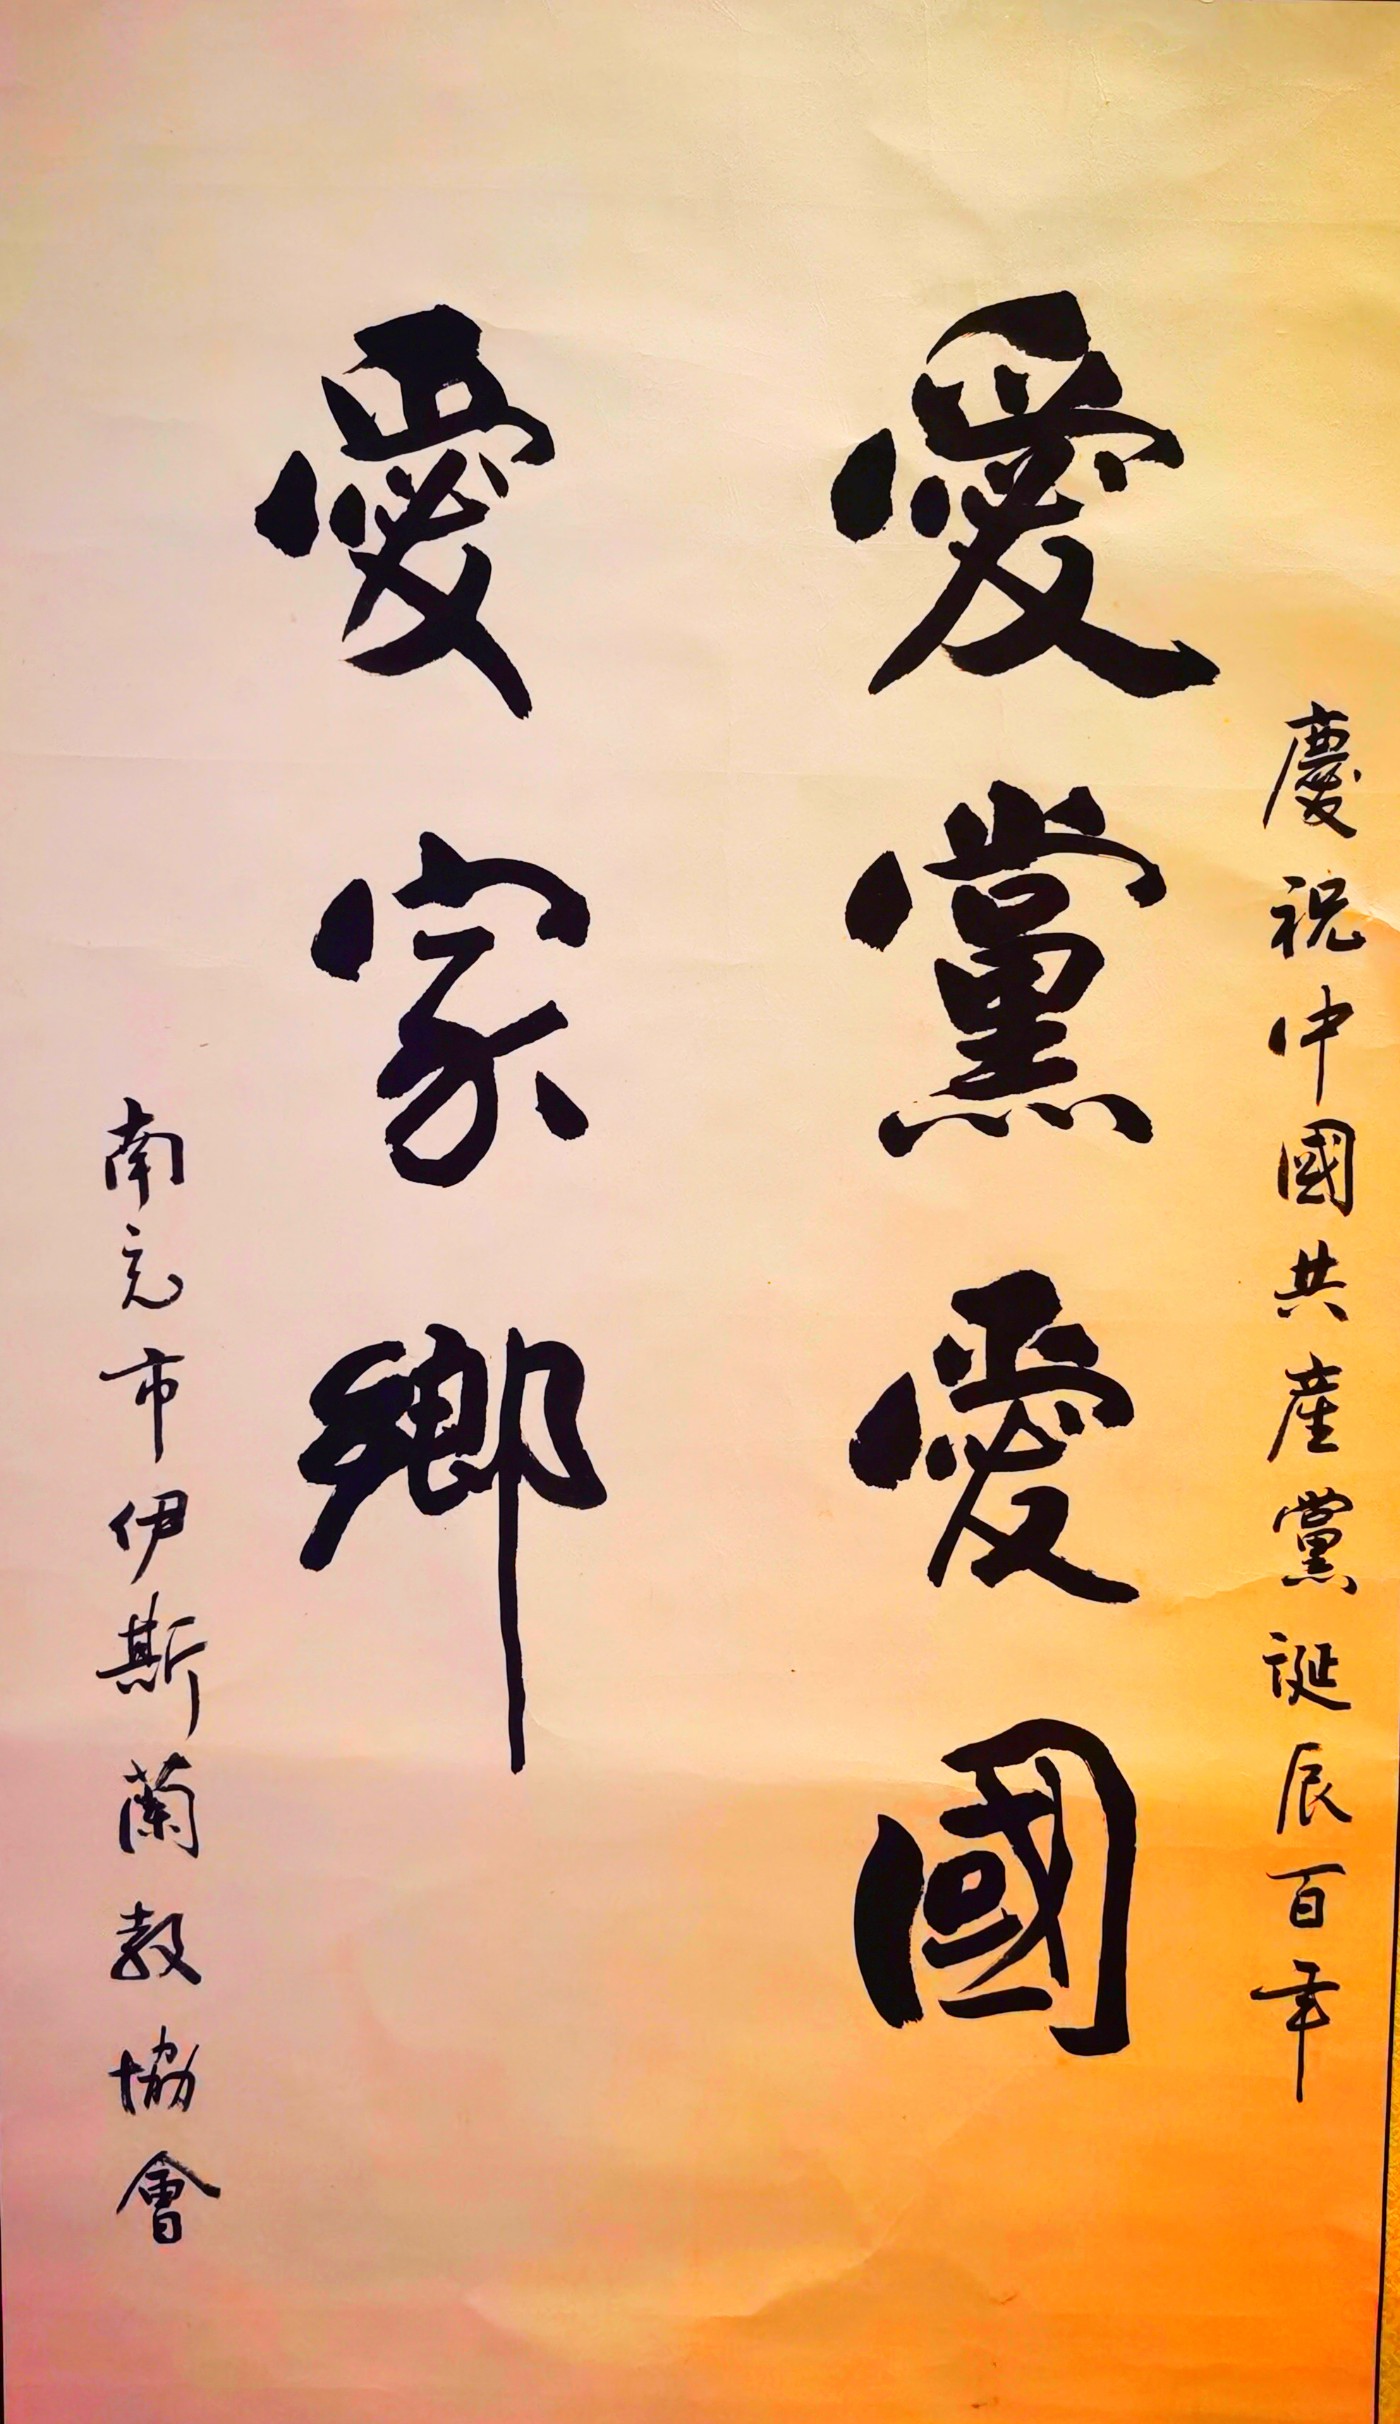 慶祝中國共産黨誕辰百年
愛黨愛國
愛家鄉
南充市伊斯蘭教協會